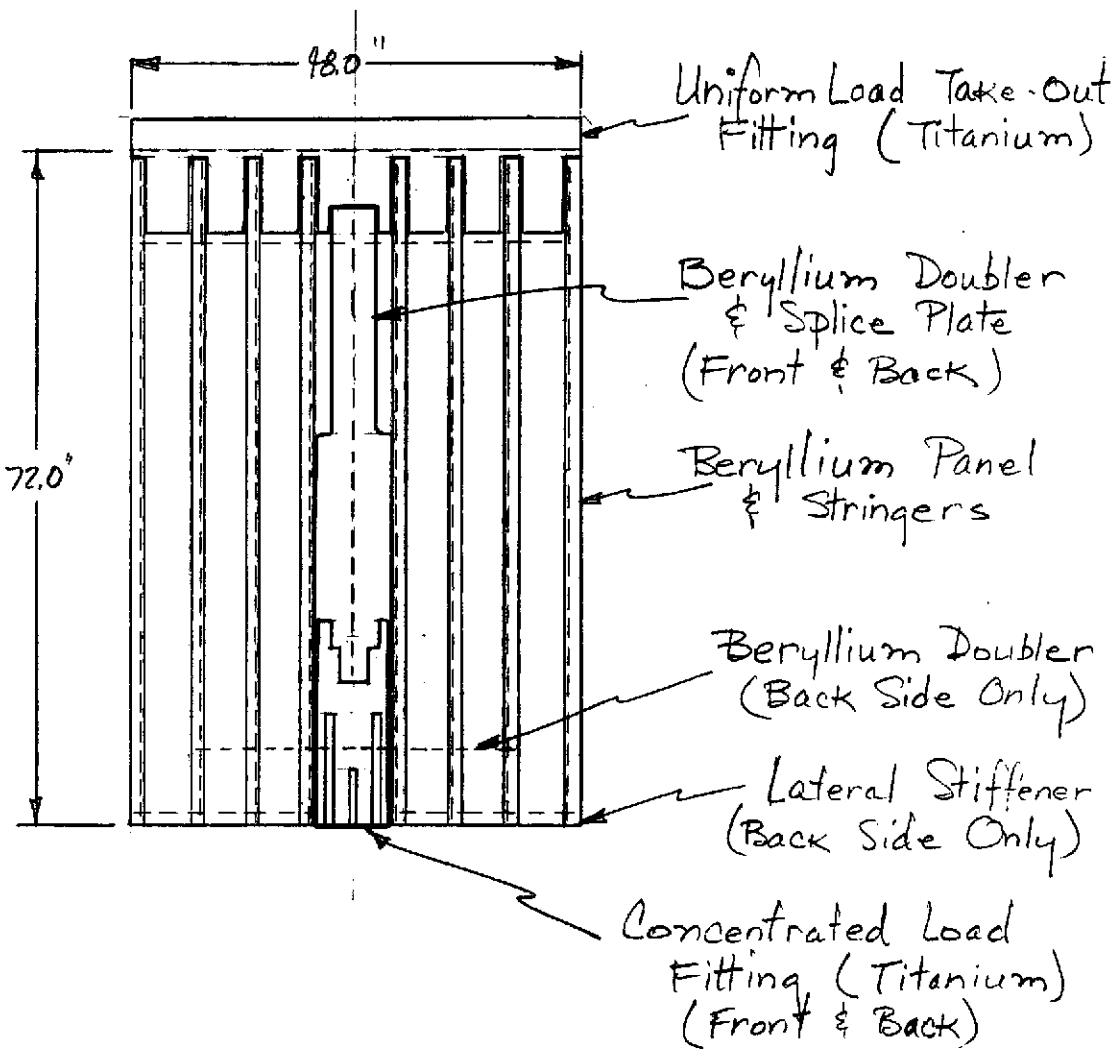 48.0"
Uniform Load Take-Out
Fitting (Titanium)
Beryllium Doubler
& Splice Plate
(Front & Back)
72.0"
Beryllium Panel
& Stringers
Beryllium Doubler
(Back Side Only)
Lateral Stiffener
(Back Side Only)
Concentrated Load
Fitting (Titanium)
(Front & Back)